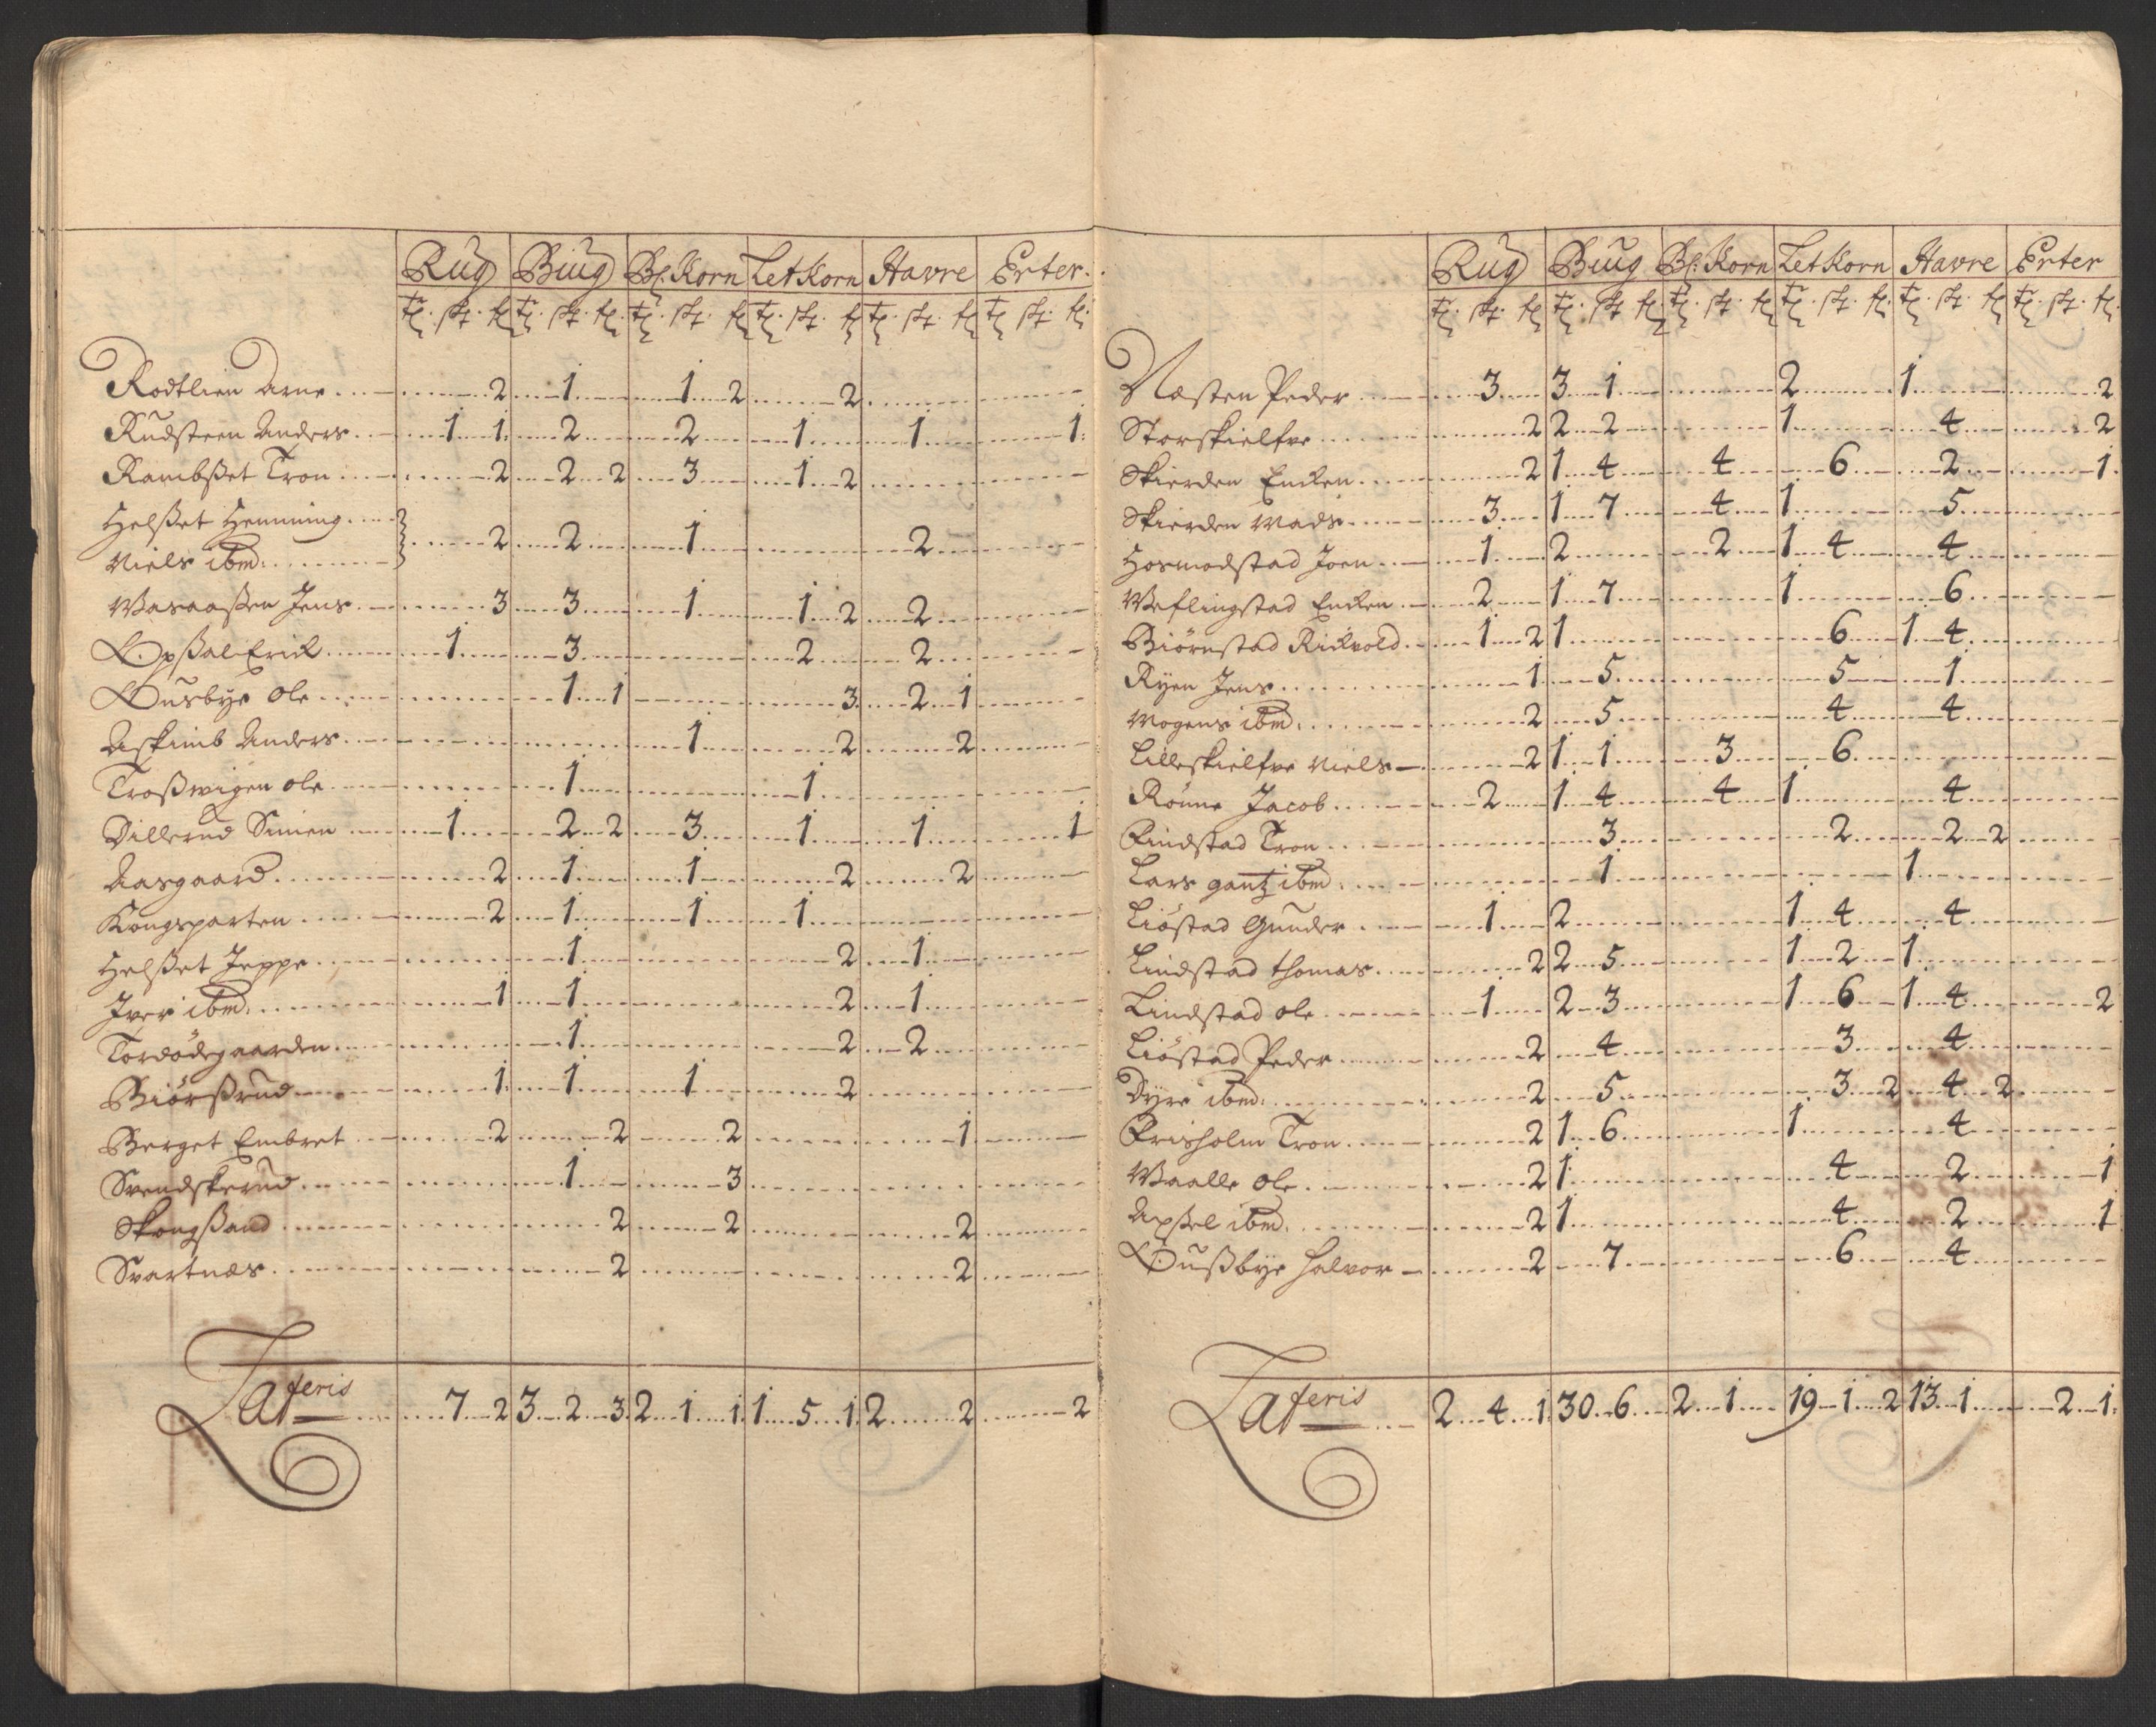 Rug Biug Bl: Korn Let Korn Havre Erter
Rodtlien Arne 2 1 1 2 2
Rudsteen Anders 1 1 2 2 1 1 1
Rambset Tron 2 2 2 3 1 2
Helsset Hemming
Niels ibm: 2 2 1 2
Wasaassen Jens 3 3 1 1 2 2
Opsal Erich 1 3 2 2
Ousbye Ole 1 1 3 2 1
Askimb Anders 1 2 2
Trosswigen Ole 1 1
Dillerud Simen 1 2 2 3 1 1 1
Aasgaard 2 1 1 2 2
Kongsparten 2 1 1 1
Helsset Jeppe 1 2 1
Iver ibm: 1 1 2 1
Tordødegaarden 1 2 2
Biørssrud 1 1 1 2
Berget Embret 2 2 2 1
Svendskerud 1 3
Skougsand 2 2 2
Svartnæs 2 2
Lateris 7 2 3 2 3 2 1 1 1 5 1 2 2 2
Rug Biug Bl: Korn Let Korn Havre Erter
Næsten Peder 3 3 1 2 1 2
Storskielfve 2 2 2 1 4 2
Skierden Encken 2 1 4 4 6 2 1
Skierden Mads 3 1 7 4 1 5
Hosmodstad Joen 1 2 2 1 4 4
Weflingstad Encken 2 1 7 1 6
Biørnstad Rickvold 1 2 1 6 1 4
Ryen Jens 1 5 5 1
Mogens ibm: 2 5 4 4
Lilleskielfve Niels 2 1 1 3 6
Rønne Jacob 2 1 4 4 1 4
Rindstad Tron 3 2 2 2
Lars gantz ibm: 1 1
Liøstad Gunder 1 2 1 4 4
Lindstad Thomas 2 2 5 1 2 1
Lindstad Ole 1 2 3 1 6 1 4 2
Liøstad Peder 2 4 3 4
Dyre ibm: 2 5 3 2 4 2
Frisholm Tron 2 1 6 1 4
Waalle Ole 2 1 4 2 1
Axel ibm: 2 1 4 2 1
Oussbye Halvor 2 7 6 4
Lateris 2 4 1 30 6 2 1 19 1 2 13 1 2 1